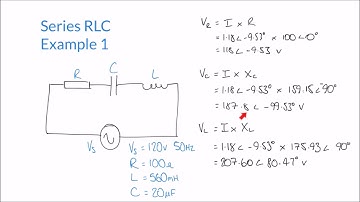 Series RLC
Example 1
R
C
L
Vs
Vs = 120v 50Hz
R = 100Ω
L = 560mH
C = 20μF
VR = I × R
= 1.18∠-9.53° × 100∠0°
= 118∠-9.53 V
VC = I × XC
= 1.18∠-9.53° × 159.15∠-90°
= 187.8∠-99.53° V
VL = I × XL
= 1.18∠-9.53° × 175.93∠90°
= 207.60∠80.47° V